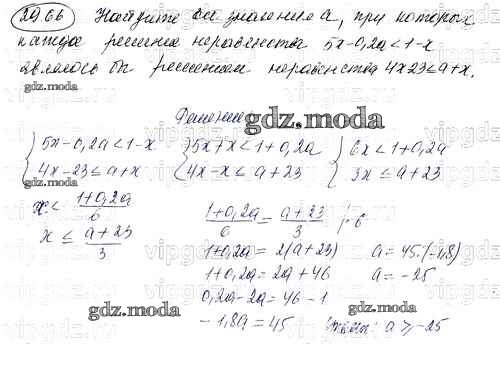 29.66 Найдите все значения a, при которых
каждое решение неравенства 5x-0,2a<1-x
являлось бы решением неравенства 4x23≤a+x.
gdz.moda
Решение:
gdz.moda
{5x-0,2a<1-x {5x+x<1+0,2a {6x<1+0,2a
{4x-23≤a+x {4x-x≤a+23 {3x≤a+23
gdz.moda
x<(1+0,2a)/6
x≤(a+23)/3
(1+0,2a)/6=(a+23)/3 |·6
1+0,2a=2(a+23) a=45:(-1,8)
1+0,2a=2a+46 a=-25
0,2a-2a=46-1
-1,8a=45 Ответ: a≥-25
gdz.moda
gdz.moda
gdz.moda